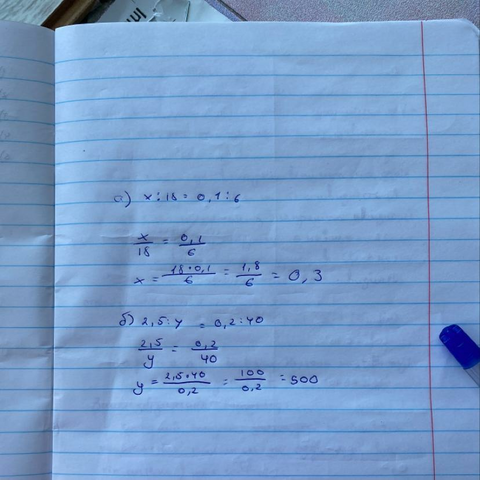 а) x : 18 = 0,1 : 6
x/18 = 0,1/6
x = 18•0,1/6 = 1,8/6 = 0,3
б) 2,5 : y = 0,2 : 40
2,5/y = 0,2/40
y = 2,5•40/0,2 = 100/0,2 = 500